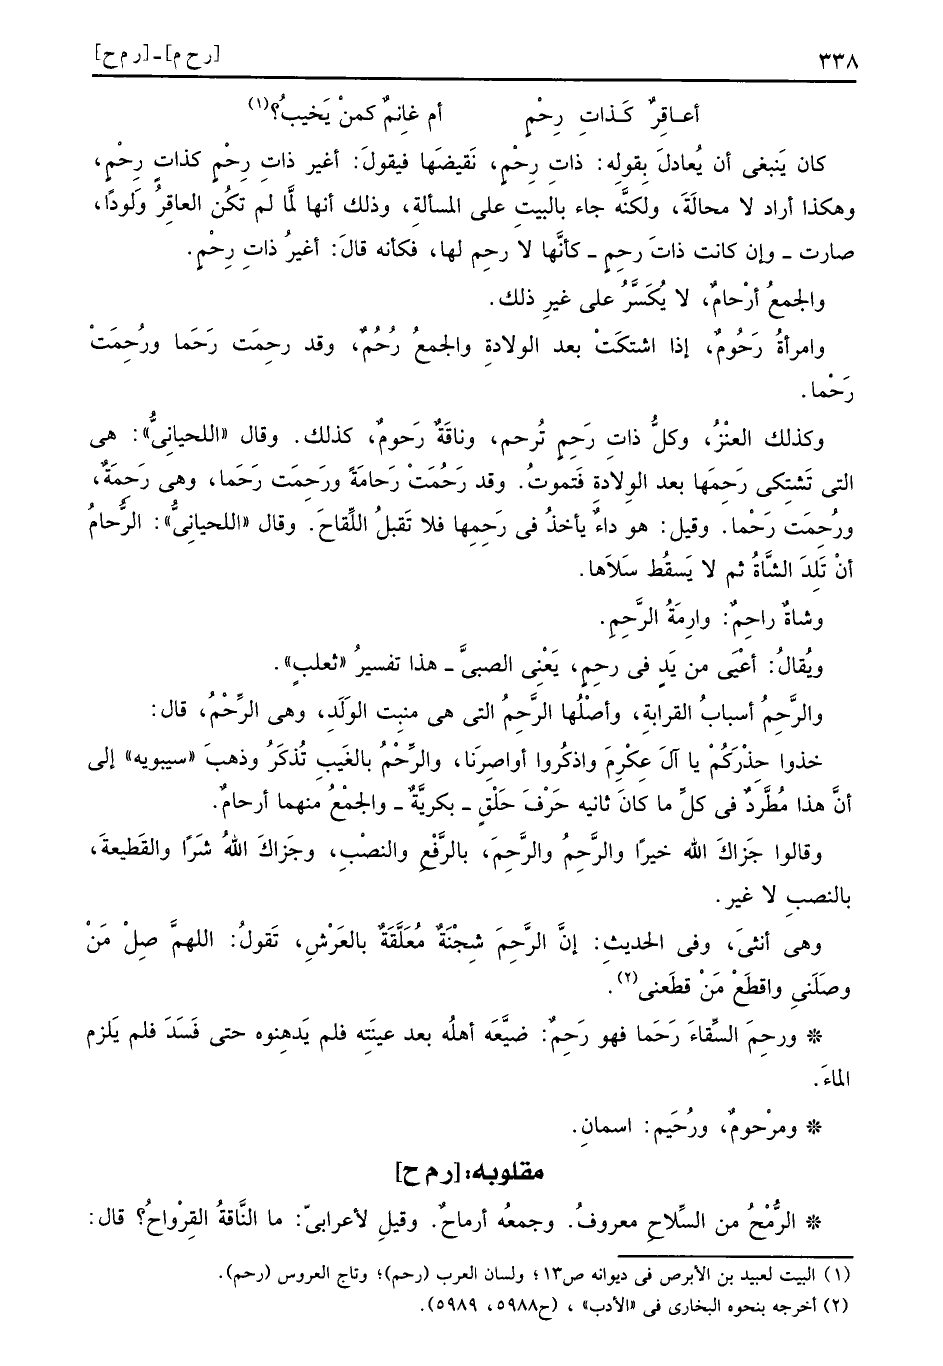 ٣٣٨ [ر ح م]-[ر م ح]
أعـاقِرٌ كَـذاتِ رِحْمٍ أم غانِمٌ كمنْ يَخيبُ؟(١)
كان يَنبغى أن يُعادلَ بِقولِه: ذاتِ رِحْمٍ، نَقيضَها فيقولَ: أغير ذاتِ رِحْمٍ كذاتِ رِحْمٍ،
وهكذا أراد لا محالَةَ، ولكنَّه جاء بالبيتِ على المسألةِ، وذلك أنها لمَّا لم تكُن العاقرُ وَلودًا،
صارت ـ وإن كانت ذاتَ رحِمٍ ـ كأنَّها لا رحِم لها، فكأنه قالَ: أغيرُ ذاتِ رِحْمٍ.
والجمعُ أرْحامٌ، لا يُكَسَّرُ على غيرِ ذلك.
وامرأةُ رَحُومٌ، إذا اشتكَتْ بعد الولادةِ والجمعُ رُحُمٌ، وقد رحِمَت رَحَما ورُحِمَتْ
رَحْما.
وكذلك العنْزُ، وكلُّ ذاتِ رَحِمٍ تُرحم، وناقَةٌ رَحومٌ، كذلك. وقال «اللحيانىُّ»: هى
التى تَشتِكى رَحِمَها بعد الولادةِ فَتموتُ. وقد رَحُمَتْ رَحامَةً ورَحِمَت رَحَما، وهى رَحِمَةٌ،
ورُحِمَت رَحْما. وقيل: هو داءٌ يأخذُ فى رَحِمِها فلا تَقبلُ اللِّقاحَ. وقال «اللحيانىُّ»: الرُّحامُ
أنْ تَلِدَ الشَّاةُ ثم لا يَسقُط سَلاَها.
وشاةٌ راحِمٌ: وارِمَةُ الرَّحِمِ.
ويُقالُ: أعْيَى من يَدٍ فى رحِمٍ، يَعْنِى الصبىَّ ـ هذا تفسيرُ «ثعلبٍ».
والرَّحِمُ أسبابُ القرابةِ، وأصْلُها الرَّحِمُ التى هى منبِت الوَلَدِ، وهى الرِّحْمُ، قال:
خذوا حِذْرَكُمْ يا آلَ عِكْرِمَ واذكُروا أواصِرَنا، والرِّحْمُ بالغَيبِ تُذكَرُ وذهبَ «سيبويه» إلى
أنَّ هذا مُطَّرِدٌ فى كلِّ ما كانَ ثانيه حَرْفَ حَلْقٍ ـ بكريَّةٌ ـ والجمْعُ منهما أرحامٌ.
وقالوا جَزاكَ الله خيرًا والرَّحِمُ والرَّحِمَ، بالرَّفْعِ والنصبْ، وجَزاكَ اللهُ شَرًا والقَطيعةَ،
بالنصبِ لا غير.
وهى أنثىَ، وفى الحديثِ: إنَّ الرَّحِمَ شِجْنَةٌ مُعَلَّقَةٌ بالعَرْشِ، تَقولُ: اللهمَّ صِلْ مَنْ
وصَلَنى واقطَعْ مَنْ قطَعنى(٢).
* ورحِمَ السِّقاءَ رَحَما فهو رَحِمٌ: ضيَّعَه أهلُه بعد عينَتِه فلم يَدهِنوه حتى فَسَدَ فلم يَلزم
الماءَ.
* ومرْحومٌ، ورُحَيم: اسمانِ.
مقلوبه: [ر م ح]
* الرُّمْحُ من السِّلاحِ معروفُ. وجمعُه أرماحٌ. وقيلِ لأعرابىّ: ما النَّاقةُ القِرْواحُ؟ قال:
(١) البيت لعبيد بن الأبرص فى ديوانه ص١٣؛ ولسان العرب (رحم)؛ وتاج العروس (رحم).
(٢) أخرجه بنحوه البخارى فى «الأدب» ، (ح٥٩٨٨، ٥٩٨٩).